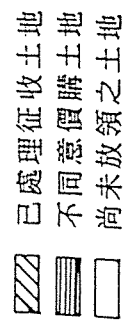 已處理征收土地
不同意價購土地
尚未放領之土地